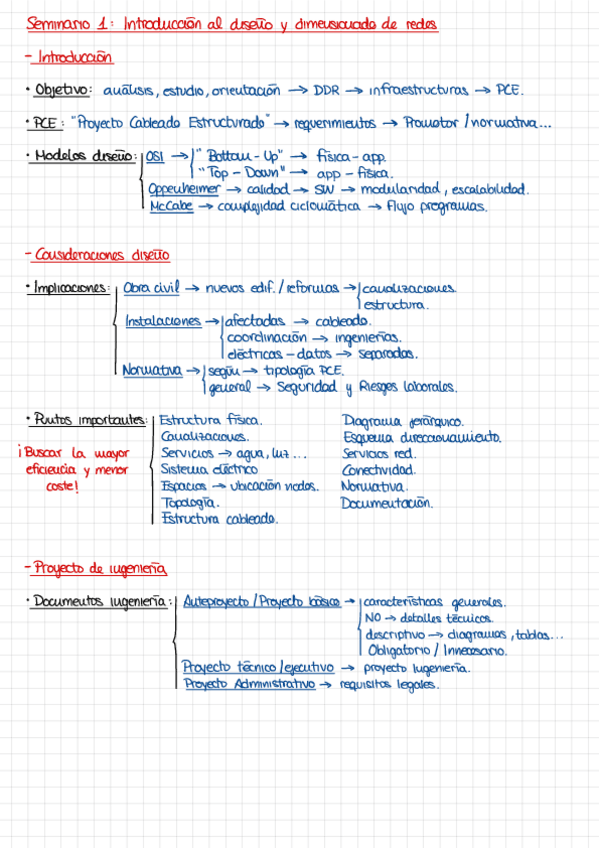 Seminario 1: Introducción al diseño y dimensionado de redes
- Introducción
· Objetivo: análisis, estudio, orientación → DDR → infraestructuras → PCE.
· PCE: "Proyecto Cableado Estructurado" → requerimientos → Promotor / normativa...
· Modelos diseño: OSI → "Bottom-Up" → física-app.
"Top-Down" → app-física.
Oppenheimer → calidad → SW → modularidad, escalabilidad.
McCabe → complejidad ciclomática → flujo programas.
- Consideraciones diseño
· Implicaciones: Obra civil → nuevos edif. / reformas → canalizaciones.
estructura.
Instalaciones → afectadas → cableado.
coordinación → ingenierías.
eléctricas - datos → separadas.
Normativa → según → tipología PCE.
general → Seguridad y Riesgos laborales.
· Puntos importantes: Estructura física. Diagrama jerárquico.
Canalizaciones. Esquema direccionamiento.
¡Buscar la mayor Servicios → agua, luz... Servicios red.
eficiencia y menor Sistema eléctrico Conectividad.
coste! Espacios → ubicación nodos. Normativa.
Topología. Documentación.
Estructura cableado.
- Proyecto de ingeniería
· Documentos ingeniería: Anteproyecto / Proyecto básico → características generales.
NO → detalles técnicos.
descriptivo → diagramas, tablas...
Obligatorio / Innecesario.
Proyecto técnico / ejecutivo → proyecto ingeniería.
Proyecto Administrativo → requisitos legales.